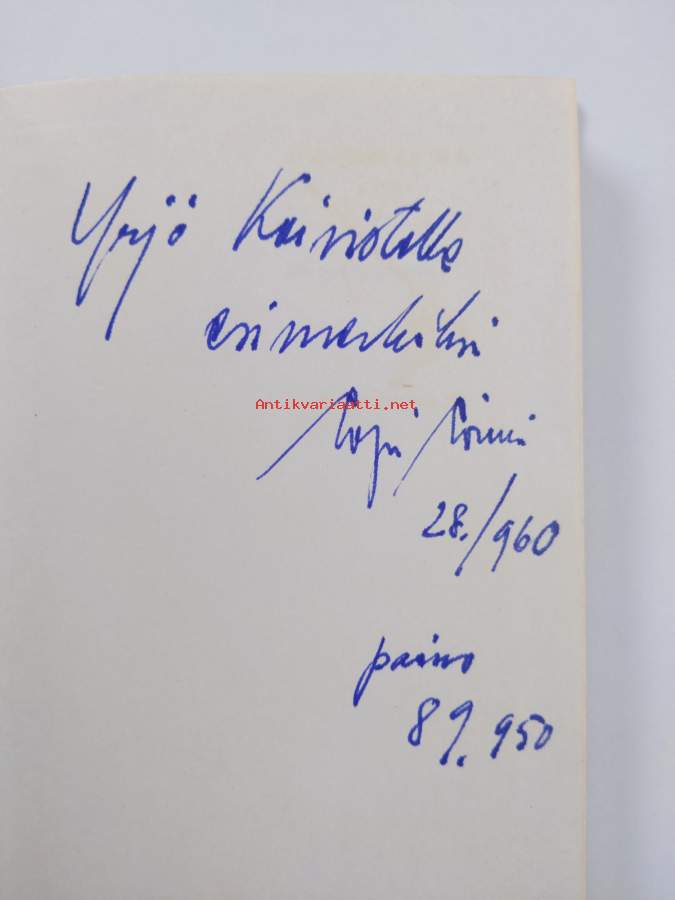 Yrjö Kaiviotalle
esimerkiksi
Antikvariaatti.net
28./960
paino
89.950